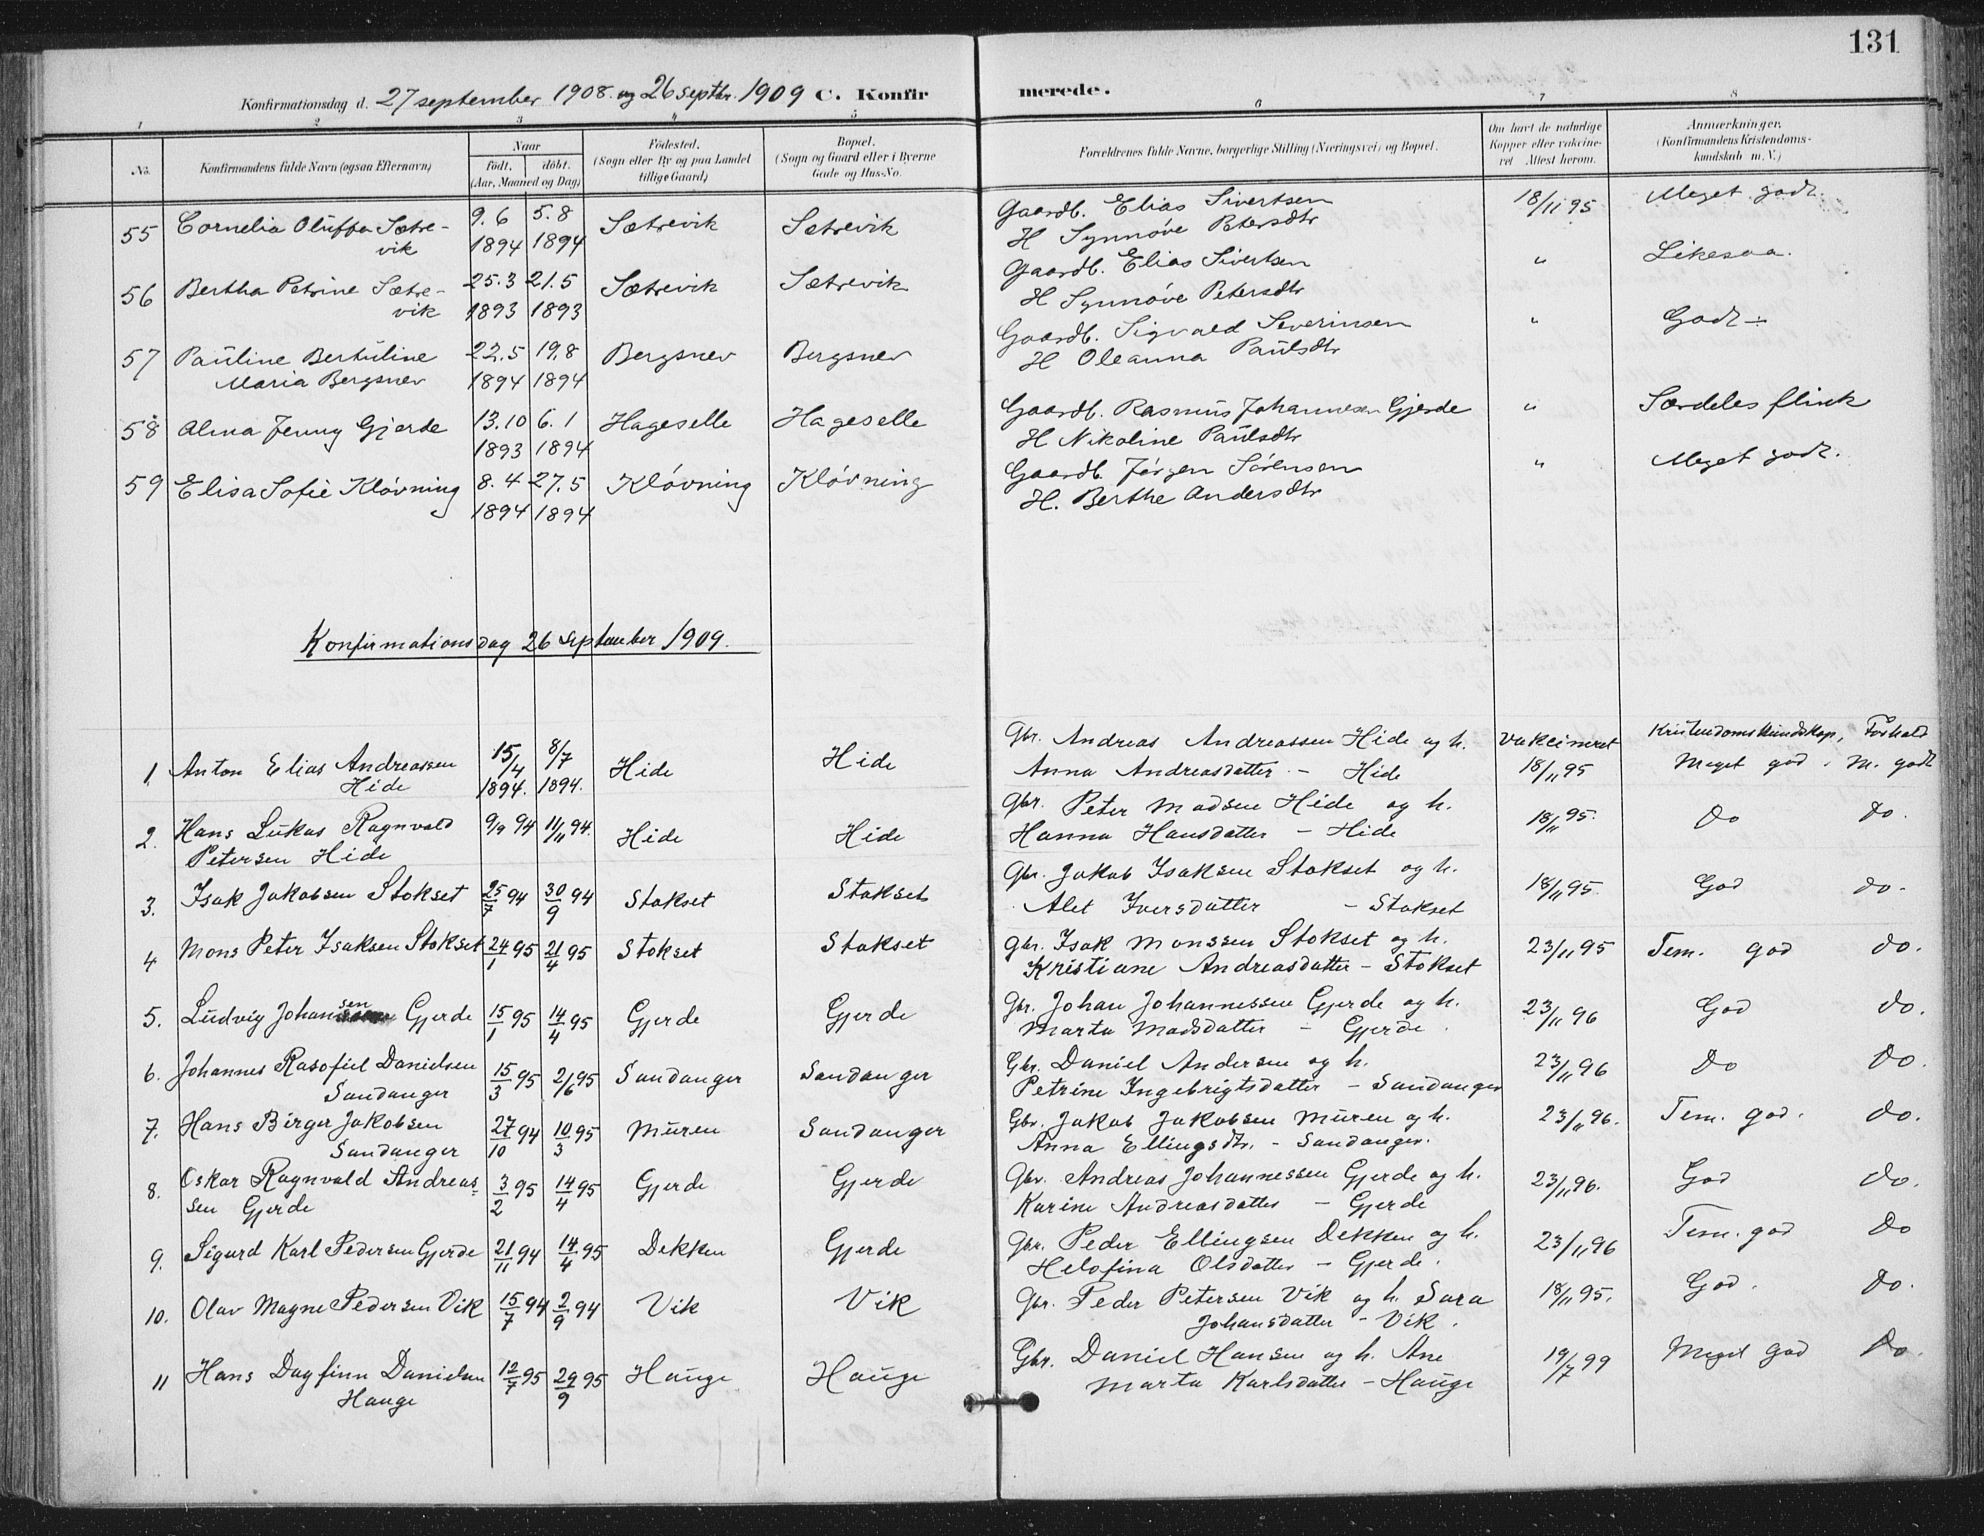 131
Konfirmationsdag d. 27 september 1908. og 26 septbr. 1909 C. Konfirmerede.
1 2 3 4 5 6 7 8
No. Konfirmandens fulde Navn (ogsaa Efternavn) Naar født, døbt. (Aar, Maaned og Dag) Fødested. (Sogn eller By og paa Landet tillige Gaard) Bopæl. (Sogn og Gaard eller i Byerne Gade og Hus-No. Forældrenes fulde Navne, borgerlige Stilling (Næringsvei) og Bopæl. Om havt de naturlige Kopper eller vakcineret Attest herom. Anmærkninger. (Konfirmandens Kristendomskundskab m. V.)
55 Cornelia Oluffa Sætre- 9.6 5.8 Sætrevik Sætrevik Gaardb. Elias Sivertsen 18/11 95 Meget godt.
vik 1894 1894 H Synnøve Petersdtr
56 Bertha Petrine Sætre- 25.3 21.5 Sætrevik Sætrevik Gaardb. Elias Sivertsen " Likesaa.
vik 1893 1893 H Synnøve Petersdtr
57 Pauline Bertuline 22.5 19.8 Bergsnev Bergsnev Gaardb. Sigvald Severinsen " Godt ÷
Maria Bergsnev 1894 1894 H Oleanna Paulsdtr
58 Alma Jenny Gjerde 13.10 6.1 Hageselle Hageselle Gaardb. Rasmus Johannesen Gjerde " Særdeles flink
1893 1894 H Nikoline Paulsdtr
59 Elisa Sofie Kløvning 8.4 27.5 Kløvning Kløvning Gaardb. Jørgen Sørensen " Meget godt.
1894 1894 H. Berthe Andersdtr
Konfirmationsdag 26 september 1909.
Kristendomskundskap, Forhold
1 Anton Elias Andreassen 15/4 8/7 Hide Hide Gbr. Andreas Andreassen Hide og h. vakcineret
Hide 1894. 1894. Anna Andreasdatter - Hide 18/11 95 Meget god. M. godt
2. Hans Lukas Ragnvald 9/9 94 11/11 94. Hide Hide Gbr. Peter Madsen Hide og h. 18/11 95. Do Do.
Petersen Hide Hanna Hansdatter - Hide
3. Isak Jakobsen Stokset 25/7 94 30/9 94 Stokset Stokset Gbr. Jakob Isaksen Stokset og h. 18/11 95. God do.
Alet Iversdatter - Stokset
4 Mons Peter Isaksen Stokset 24/1 95 21/4 95 Stokset Stokset Gbr. Isak Monssen Stokset og h. 23/11 95 Tem. god do.
Kristiane Andreasdatter - Stokset
5. Ludvig Johansen Gjerde 15/1 95 14/4 95 Gjerde Gjerde Gbr. Johan Johannessen Gjerde og h. 23/11 96 God do.
Marta Madsdatter - Gjerde.
6. Johannes Rasofiel Danielsen 15/3 95 2/6 95 Sandanger Sandanger Gbr. Daniel Andersen og h. 23/11 96 Do Do.
Sandanger Petrine Ingebrigtsdatter - Sandanger
7. Hans Birger Jakobsen 27/10 94 10/3 95 Muren Sandanger Gbr. Jakob Jakobsen Muren og h. 23/11 96. Tem. god. do.
Sandanger Anna Ellingsdtr. - Sandanger.
8. Oskar Ragnvald Andreas- 3/2 95 14/4 95 Gjerde Gjerde Gbr. Andreas Johannessen Gjerde og h. 23/11 96. God do.
sen Gjerde Karine Andreasdatter - Gjerde
9. Sigurd Karl Pedersen Gjerde 21/11 94 14/4 95 Dekken Gjerde Gbr. Peder Ellingsen Dekken og h. 23/11 96 Tem. god Do
Helofina Olsdatter - Gjerde.
10. Olav Magne Pedersen Vik 15/7 94 2/9 94 Vik Vik Gbr. Peder Petersen Vik og h. Sara 18/11 95. God. Do.
Johansdatter - Vik.
11 Hans Dagfinn Danielsen 12/7 95 29/9 95 Hauge Hauge Gbr. Daniel Hansen og h. Ane 19/7 99 Meget god Do.
Hauge Marta Karlsdatter - Hauge